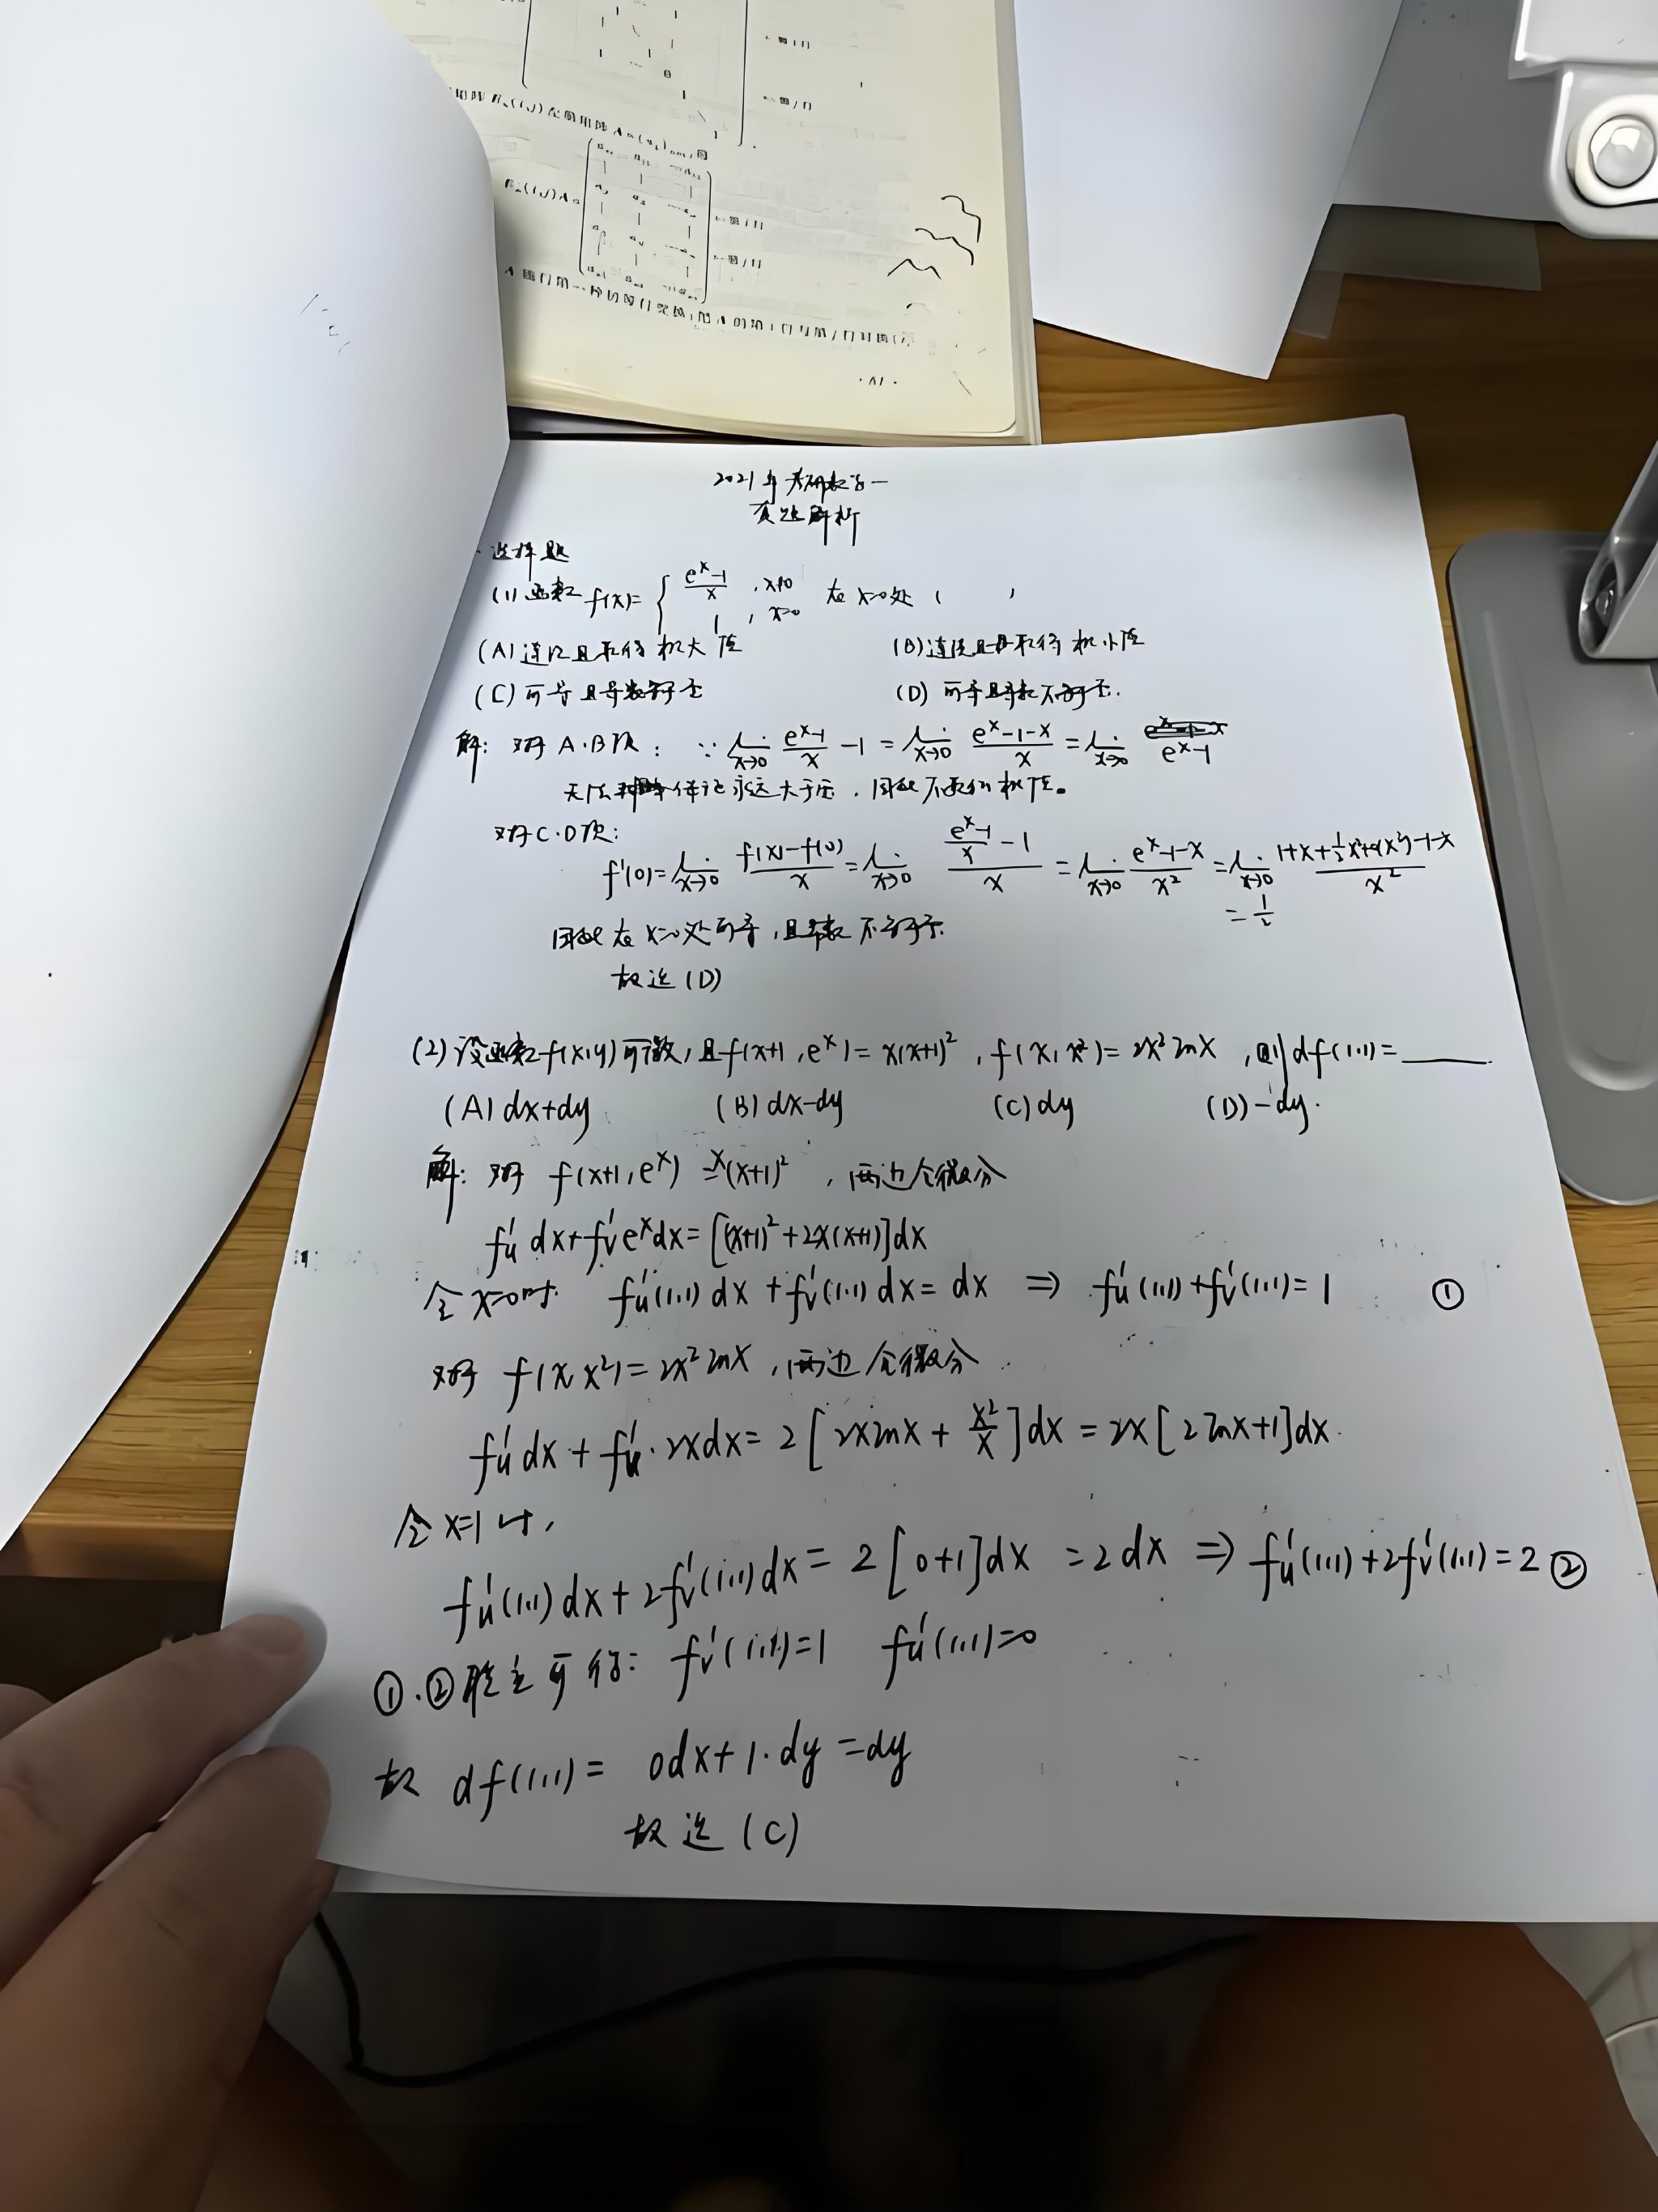 2021年考研数学一
真题解析
一、选择题
(1) 函数 f(x)= { (e^x-1)/x , x≠0
1 , x=0 在x=0处 ( )
(A) 连续且取得极大值 (B) 连续且取得极小值
(C) 可导且导数等于零 (D) 可导且导数不等于零.
解: 对于A.B项: ∵ lim x→0 (e^x-1)/x -1 = lim x→0 (e^x-1-x)/x = lim x→0 e^x-1
无法保证永远大于零, 因此不取得极值。
对于C.D项:
f'(0)= lim x→0 (f(x)-f(0))/x = lim x→0 ((e^x-1)/x -1)/x = lim x→0 (e^x-1-x)/x^2 = lim x→0 (1+x+1/2x^2+o(x^2)-1-x)/x^2
= 1/2
因此在x=0处可导, 且导数不等于零.
故选(D)
(2) 设函数f(x,y)可微, 且f(x+1, e^x)= x(x+1)^2, f(x, x^2)= 2x^2 lnx, 则df(1,1)=______
(A) dx+dy (B) dx-dy (C) dy (D) -dy.
解: 对于 f(x+1, e^x) = x(x+1)^2, 两边全微分
f'u dx+f'v e^x dx= [(x+1)^2+2x(x+1)]dx
令x=0时. f'u(1,1) dx + f'v(1,1) dx = dx ⇒ f'u(1,1)+f'v(1,1)= 1 ①
对于 f(x, x^2)= 2x^2 lnx, 两边全微分
f'u dx + f'u · 2x dx= 2 [2x lnx + x^2/x] dx = 2x [2 lnx+1] dx.
令 x=1 时,
f'u(1,1) dx + 2f'v(1,1) dx = 2 [0+1] dx = 2 dx ⇒ f'u(1,1)+2f'v(1,1)= 2 ②
①.②联立可得: f'v(1,1)=1 f'u(1,1)=0
故 df(1,1)= 0dx+1·dy =dy
故选 (C)